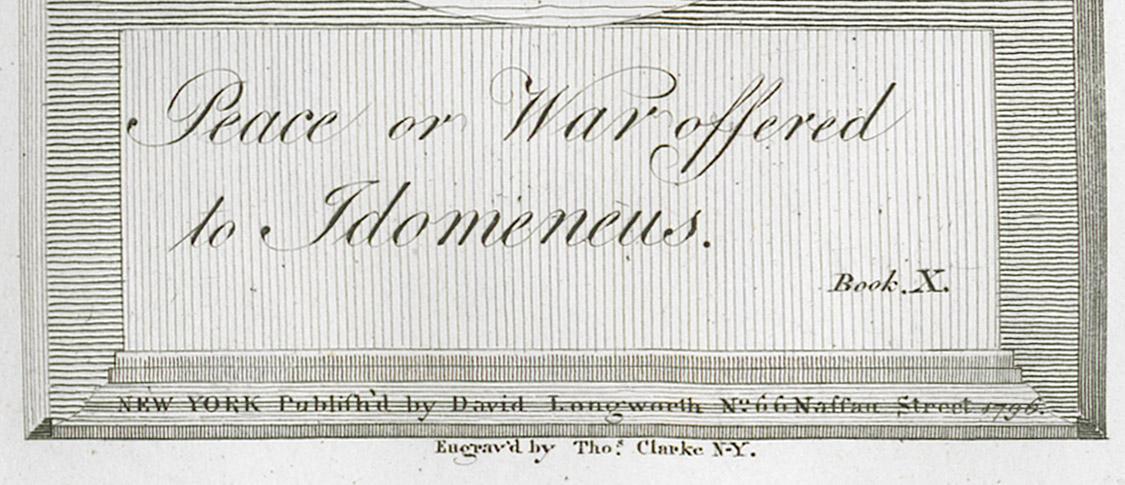 Peace or War offered
to Idomeneus.
Book. X.
NEW YORK Publiſh'd by David Longworth No. 66 Naſſau Street 1796.
Engrav'd by Thos. Clarke N-Y.